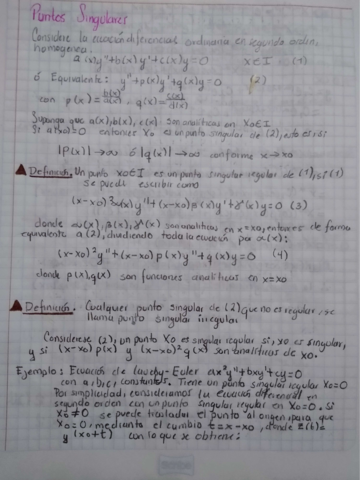 Puntos Singulares
Considere la ecuación diferencial ordinaria en segundo orden,
homogenea.
a(x)y''+b(x)y'+c(x)y=0 x∈I (1)
ó Equivalente: y''+p(x)y'+q(x)y=0 (2)
con p(x)=b(x)/a(x), q(x)=c(x)/a(x)
Suponga que a(x), b(x), c(x) son analiticas en x0∈I
Si a(x0)=0 entonces x0 es un punto singular de (2), esto es si
|P(x)|→∞ ó |q(x)|→∞ conforme x→x0
Definición. Un punto x0∈I es un punto singular regular de (1), si (1)
se puede escribir como
(x-x0)²α(x)y''+(x-x0)β(x)y'+γ(x)y=0 (3)
donde α(x), β(x), γ(x) son analiticas en x=x0, entonces de forma
equivalente a (2), dividiendo toda la ecuación por α(x):
(x-x0)²y''+(x-x0)p(x)y'+q(x)y=0 (4)
donde p(x), q(x) son funciones analiticas en x=x0
Definición. Cualquier punto singular de (2) que no es regular, se
llama punto singular irregular
Considerese (2), un punto x0 es singular regular si, x0 es singular,
y si (x-x0)p(x) y (x-x0)²q(x) son analiticas de x0.
Ejemplo: Ecuación de Cauchy-Euler ax²y''+bxy'+cy=0
con a,b,c, constantes. Tiene un punto singular regular x0=0
Por simplicidad, consideramos la ecuación diferencial en
segundo orden con un punto singular regular en x0=0. Si
x0≠0 se puede trasladar el punto al origen, para que
x0=0, mediante el cambio t=x-x0, donde z(t)=
y(x0+t) con lo que se obtiene: